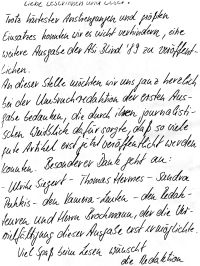 Liebe Leserinnen und Leser!
Trotz härtester Anstrengungen und größten
Einsatzes konnten wir es nicht verhindern, eine
weitere Ausgabe der Abi Blind '89 zu veröffent-
lichen.
An dieser Stelle möchten wir uns ganz herzlich
bei der Umbruchredaktion der ersten Aus-
gabe bedanken, die durch ihren journalisti-
schen Weitblick dafür sorgte, daß so viele
gute Artikel erst jetzt veröffentlicht werden
konnten. Besonderer Dank geht an:
- Ulrike Siegert - Thomas Hermes - Sandra
- den Kamera-Leuten - den Redak-
teuren und Herrn Brochmann, der die Ver-
vielfältigung dieser Ausgabe erst ermöglichte.
Viel Spaß beim Lesen wünscht
die Redaktion